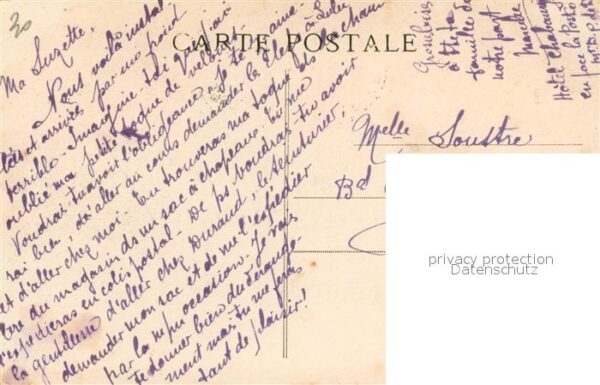 30
CARTE POSTALE
Ma Suzette,
Nous voilà instal-
lées et arrivées par un froid
terrible. Imagine-toi que j'ai
oublié ma petite toque de velours. Je te
Voudrai-tu avoir l'obligeance
rai bien d'aller au cours demander la clef à Lulu
et d'aller chez moi. Tu trouveras ma toque ds la cham
bre du magasin ds un sac à chapeaux. tu me
l'expédieras en colis postal. De ps voudrais-tu avoir
la gentillesse d'aller chez Durand, le teinturier,
demander mon sac et de me l'expédier
par la même occasion. Je vais
te donner bien du dérange-
ment mais tu me feras
tant de plaisir!
Melle Soustre
Bd
à ta
famille de
notre part
Hôtel
en face la Poste
privacy protection
Datenschutz